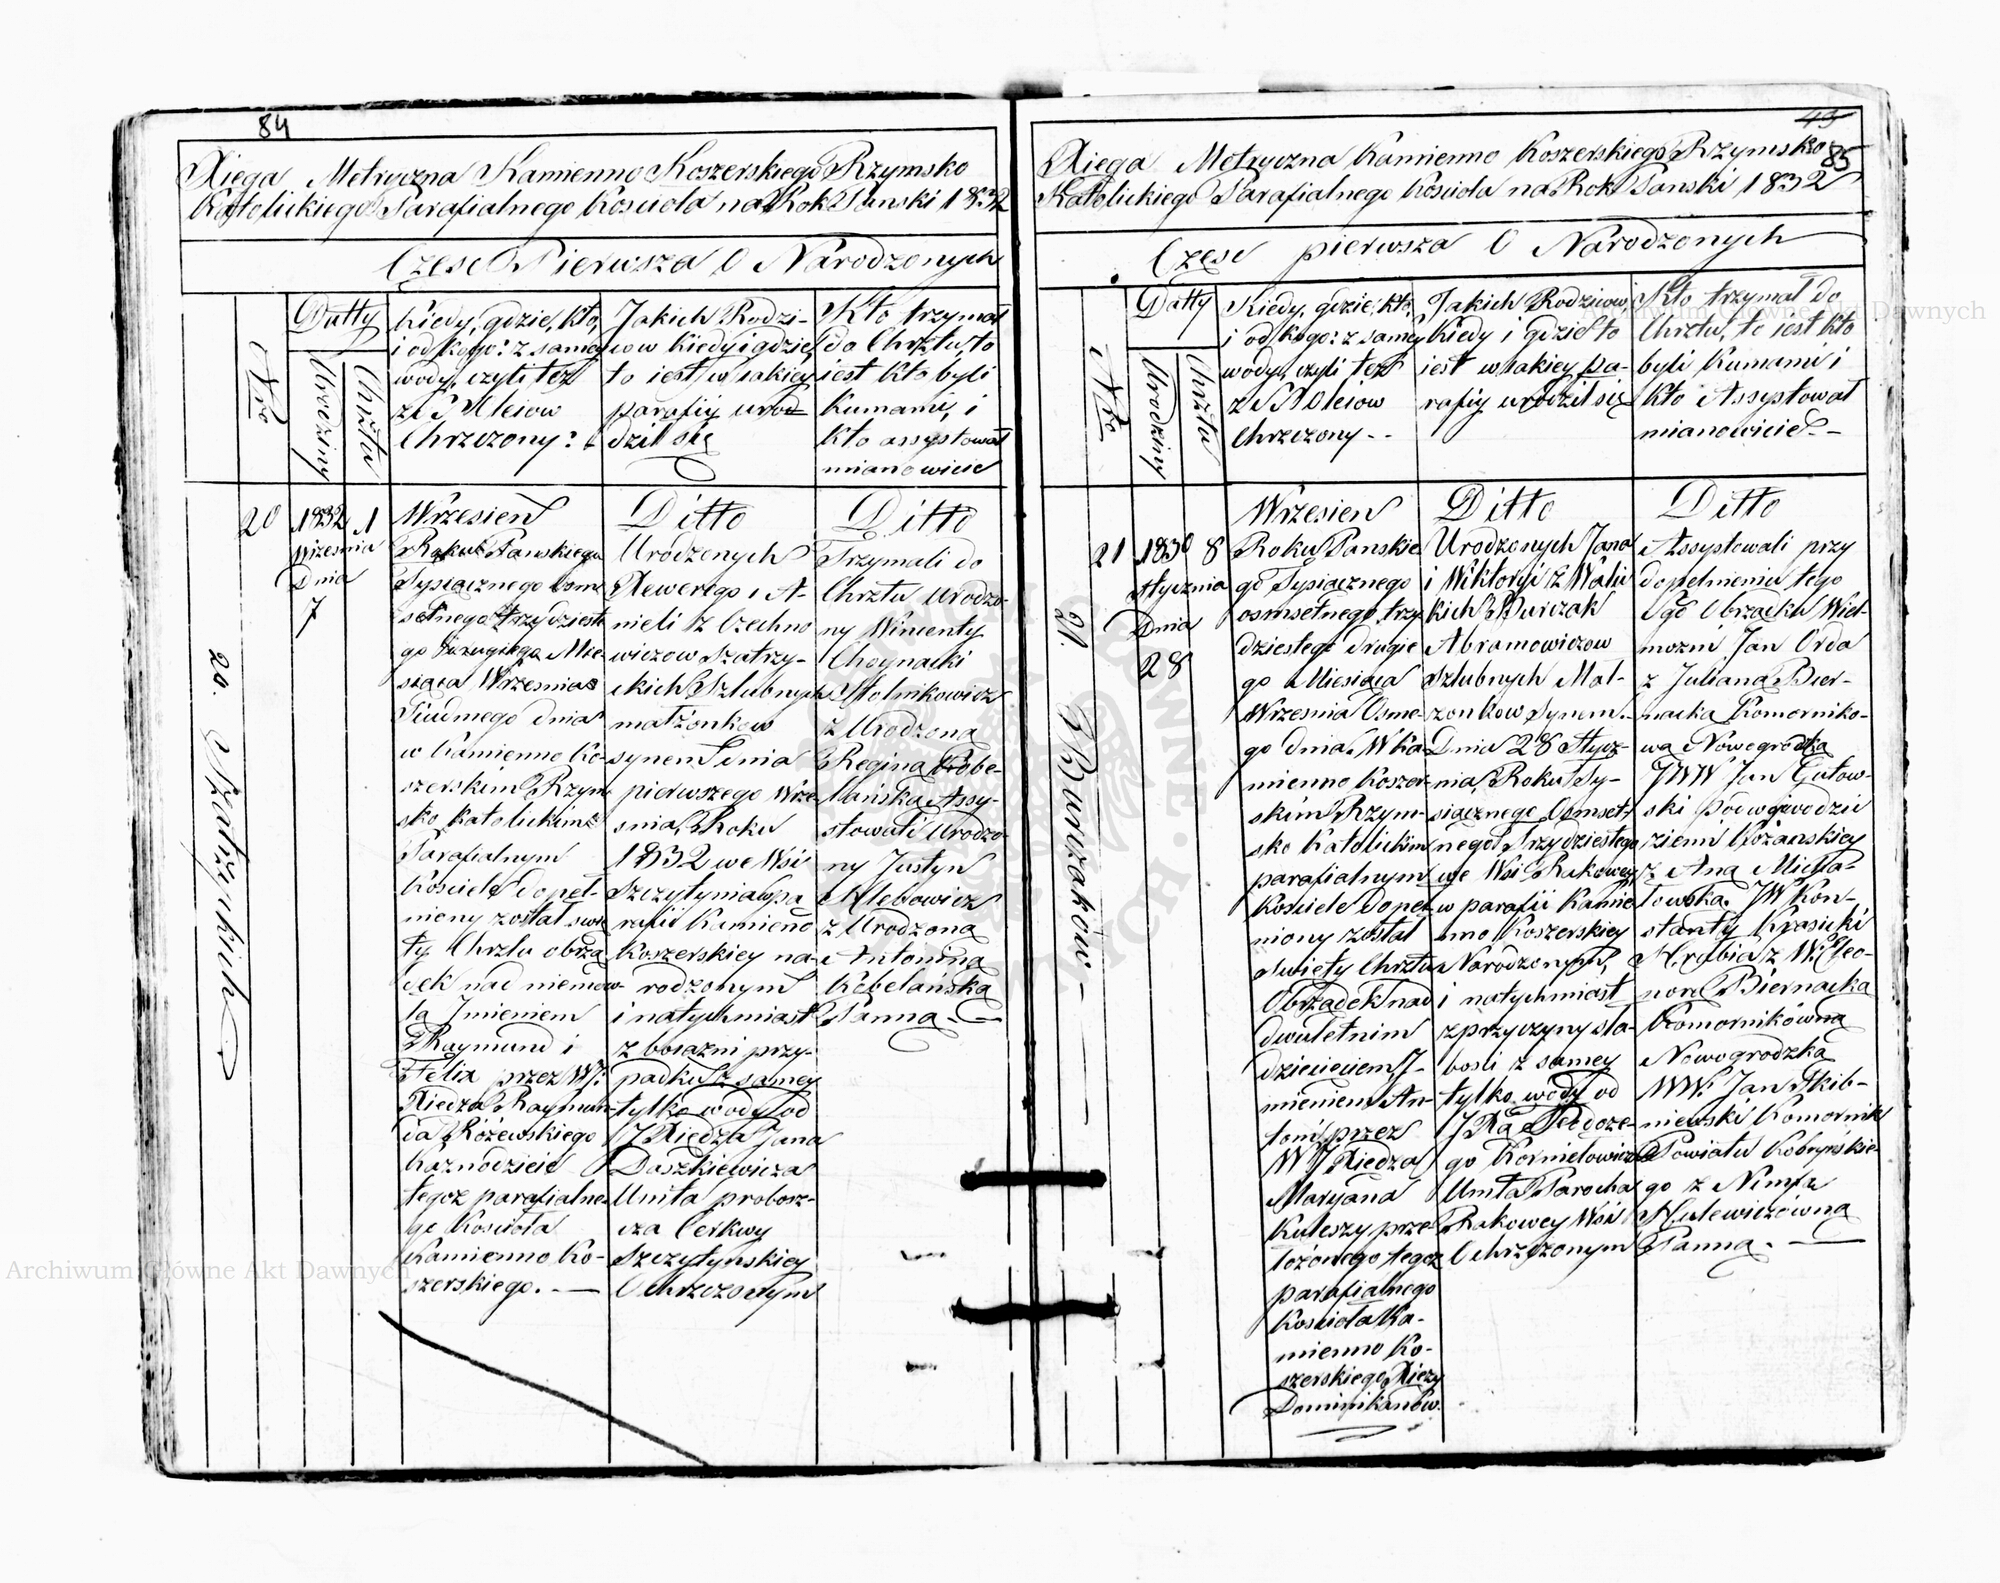 84
Xięga Metryczna Kamienno Koszerskiego Rzymsko
Katolickiego Parafialnego Kościoła na Rok Panski 1832
Częsc Pierwsza O Narodzonych
Nro
Datty
Urodziny
Chrztu
Kiedy, gdzie, kto,
i od kogo: z samey
wody, czyli też
z S. Oleiow
Chrzczony?
Jakich Rodzi-
cow kiedy i gdzie
to iest w iakiey
parafiy urod
dził się
Kto trzymał
do Chrztu, to
iest kto byli
Kumami, i
Kto assystował
mianowicie
20
1832
Wrzesnia
Dnia
7
1
20. Szatrzyckich
Wrzesien
Roku Panskiego
Tysiącznego osm
setnego trzydzieste
go drugiego Mie-
siąca Wrzesnia
Siudmego dnia
w Kamienno Ko-
szerskim Rzym
sko katolickim
Parafialnym
Kościele dopeł-
niony został swię
ty Chrztu obrzą
dek nad niemow-
ta Imieniem
Raymund i
Felix przez WJ:
Xiedza Raymun-
da Różewskiego
Kaznodzieie
tegoż parafialne-
go Kościoła
Kamienno Ko-
szerskiego.
Ditto
Urodzonych
Xewerego i A-
nieli z Czechno
wiczow Szatrzy-
ckich Szlubnych
małżonkow
synem dnia
pierwszego Wrze
snia, Roku
1832 we Wsi
Szczytyniawpa
rafii Kamieno
Koszerskiey na-
rodzonym
i natychmiast
z boiazni przy-
padku z samey
tylko wody od
J Xiedza Jana
Daszkiewicza
Unita probosz-
cza Cerkwy
Szczytynskiey
Ochrzczonym
Ditto
Trzymali do
Chrztu Urodzo-
ny Wincenty
Choynacki
Stolnikowicz
z Urodzoną
Reginą Kobe-
lańską Assy-
stowali Urodzo-
ny Justyn
Chlebowicz
z Urodzoną
Antoniną
Kobelańską
Panną.
45
85
Xięga Metryczna Kamienno Koszerskiego Rzymsko
Katolickiego Parafialnego Kościoła na Rok Panski 1832
Częsc pierwsza O Narodzonych
Nro
Datty
Urodziny
Chrztu
Kiedy, gdzie, kto,
i od kogo: z samey
wody, czyli też
z S Oleiow
Chrzczony --
Jakich Rodzicow
Kiedy i gdzie to
iest w iakiey pa-
rafiy urodził się
Kto trzymał do
Chrztu, to iest kto
byli Kumami i
kto Assystował
mianowicie --
21
1830
stycznia
Dnia
28
8
21. Burczaków
Wrzesien
Roku Panskie
go Tysiącznego
osmsetnego trzy
dziestego drugie
go Miesiąca
Wrzesnia Osme-
go dnia, W Ka-
mienno Koszer-
skim Rzym-
sko Katolickim
parafialnym
Kościele dopeł-
niony został
Swięty Chrztu
Obrządek nad
dwuletnim
dziecięciem J-
mieniem An-
toni przez
W J Xiedza
Maryana
Kuleszy prze-
łożonego tegoż
parafialnego
Kościoła Ka-
mienno Ko-
szerskiego Xięży
Dominikanów.
Ditto
Urodzonych Jana
i Wiktoryi z Wali
ckich Burczak
Abramowiczow
Szlubnych Mał-
zonkow Synem.
Dnia 28 Stycz-
nia, Roku Ty-
siącznego Osmset-
nego Trzydziestego
we Wsi Rakowey
w parafii Kamie
nno Koszerskiey
Narodzonym,
i natychmiast
z przyczyny sła-
bości z samey
tylko wody od
J Xa Teodoze-
go Kornielowicza
Unita Parocha
Rakowey Wsi
Ochrzczonym
Ditto
Assystowali przy
dopełnieniu tego
Sgo Obrządku Wiel-
mozni Jan Orda
z Julianą Bier-
nacką Komorniko-
wa Nowogrodzką
JWW Jan Gutow-
ski podwojewodzic
ziemi Rożanskiey
z Aną Micha-
łowską. JW Kon-
stanty Krasicki
Hrabia z W. Eleo-
norą Biernacką
Komornikówną
Nowogrodzką
WW: Jan Skib-
niewski Komornik
Powiatu Kobrynskie-
go z Nimfą
Hulewiczówną
Panną.
Archiwum Główne Akt Dawnych
Archiwum Główne Akt Dawnych